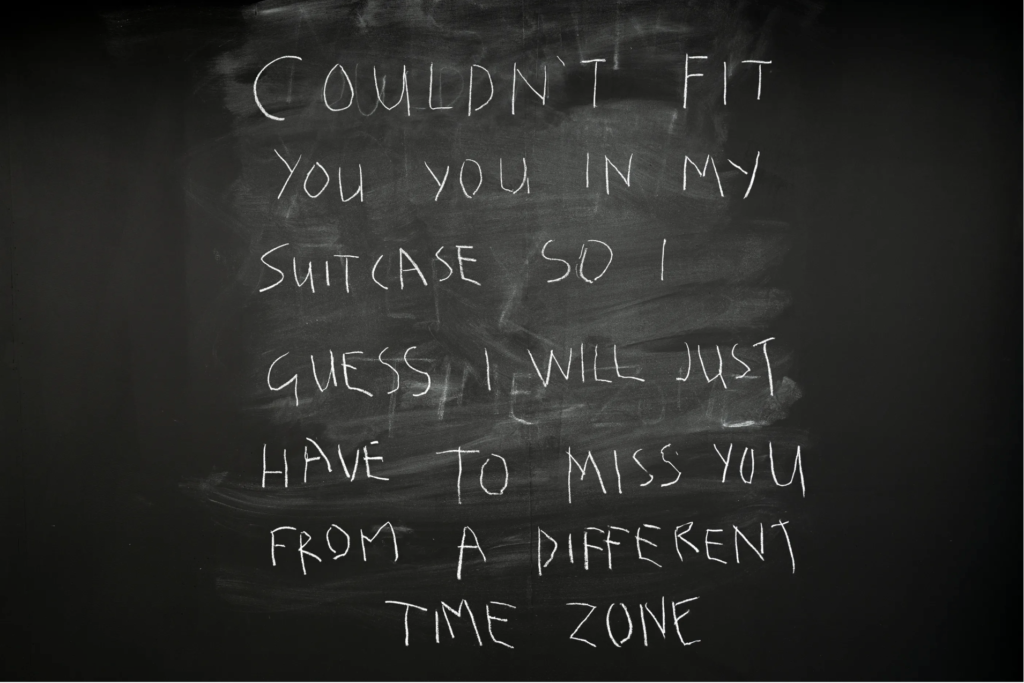 COULDN'T FIT
YOU YOU IN MY
SUITCASE SO I
GUESS I WILL JUST
HAVE TO MISS YOU
FROM A DIFFERENT
TIME ZONE